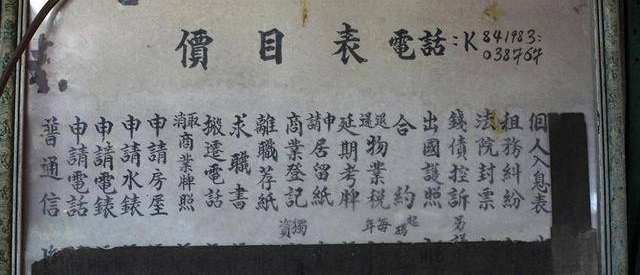 價目表 電話:K 841983:
038767
個人入息表
租務糾紛
法院封票
錢債控訴 另議
出國護照
合約 起碼
退還物業税 每年
延期考牌
申請居留紙
商業登記 獨資
離職荐紙
求職書
搬遷電話
取消商業牌照
申請房屋
申請水錶
申請電錶
申請電話
普通信